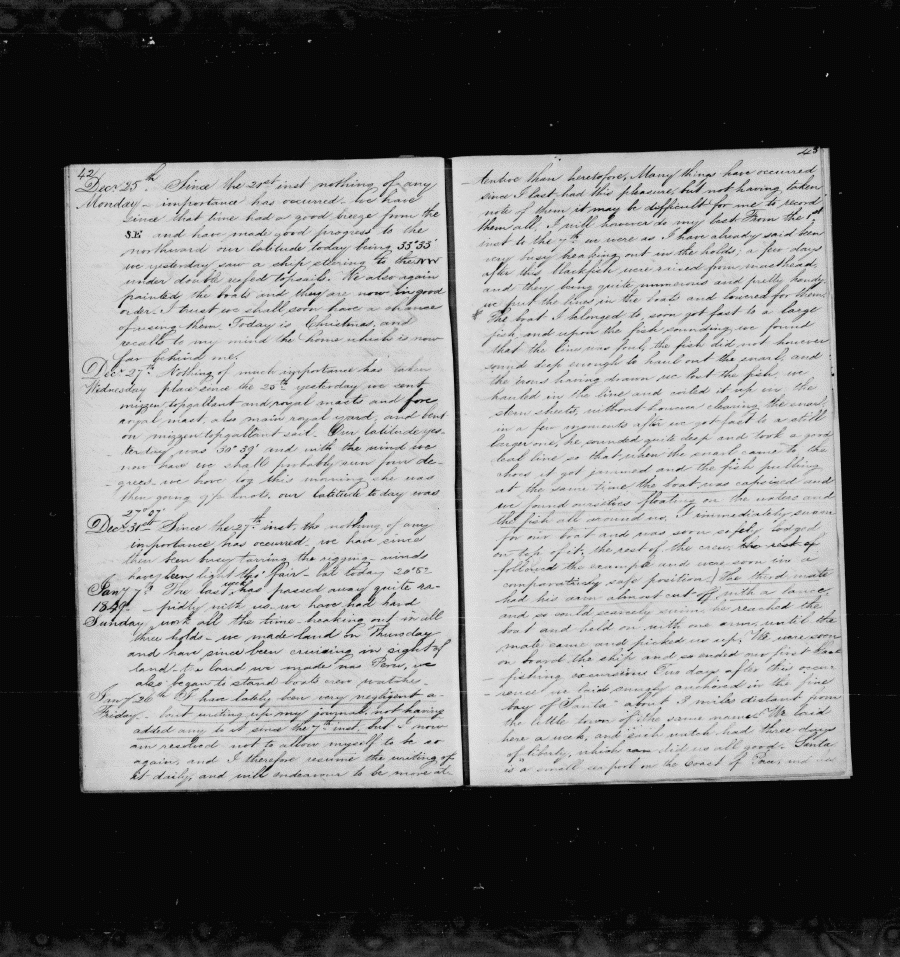 42
Decr 25th. Since the 20st inst nothing of any
Monday - importance has occurred. We have
since that time had a good breeze from the
SE and have made good progress to the
northward our latitude today being 33°33'
we yesterday saw a ship stering to the NW
under double reefed topsails. We also again
painted the boats and they are now in good
order. I trust we shall soon have a chance
of using them. Today is Christmas, and
recalls to my mind the home which is now
far behind me.
Decr 27th. Nothing of much importance has taken
Wednesday place since the 25th yesterday we sent
mizzen topgallant and royal masts and fore
royal mast, also main royal yard, and bent
on mizzen topgallant sail. Our latitude yes-
terday was 30°39' and with the wind we
now have we shall probably run four de-
- grees - we hove log this morning she was
then going 9½ knots. our latitude to day was
27°07'
Decr 30th Since the 27th inst, the nothing of any
importance has occurred - we have since
then been busy tarring the rigging - winds
have been light tho' fair - Lat today 20°52
Jany 7th The last week has passed away quite ra-
1849. - pidly with us. we have had hard
Sunday work all the time - breaking out in all
three holds - we made land on Thursday
and have since been cruising in sight of
land - the land we made was Peru, we
also began to stand boats crew watches.
Jany 26th I have lately been very negligent a-
Friday - bout writing up my journal, not having
added any to it since the 7th inst. but I now
am resolved not to allow myself to be so
again, and I therefore resume the writing of
it daily, and will endeavour to be more at-
43
-tentive than heretofore. Many things have occurred
since I last had this pleasure, but not having taken
note of them it may be difficult for me to record
them all. I will however do my best From the 1st
inst to the 7th we were as I have already said been
very busy breaking out in the holds; a few days
after this, blackfish were raised from masthead,
and they being quite numerous and pretty handy
we put the lines in the boats and lowered for them.
The boat I belonged to, soon got fast to a large
fish, and upon the fish sounding, we found
that the line was foul, the fish did not however
sound deep enough to haul out the snarl, and
the irons having drawn we lost the fish, we
hauled in the line and coiled it up in the
stern sheets, without however clearing the snarl,
in a few moments after we got fast to a still
larger one, he sounded quite deep and took a good
deal line so that when the snarl came to the
chocs it got jammed and the fish pulling
at the same time the boat was capsised and
we found ourselves floating on the waters and
the fish all around us. I immediately swam
for our boat and was soon safely lodged
on top of it, the rest of the crew, the rest of
followed the example and were soon in a
comparatively safe position. The third mate
had his arm almost cut off with a lance,
and so could scarcely swim, he reached the
boat and held on with one arm, until the
mate came and picked us up. We were soon
on board the ship and so ended our first black
- fishing excursion. Two days after this occur
- rence we laid snugly anchored in the fine
bay of Santa - about 3 miles distant from
the little town of the same name. We laid
here a week, and each watch had three days
of liberty, which did us all good. Santa
is a small seaport on the Coast of Peru, and